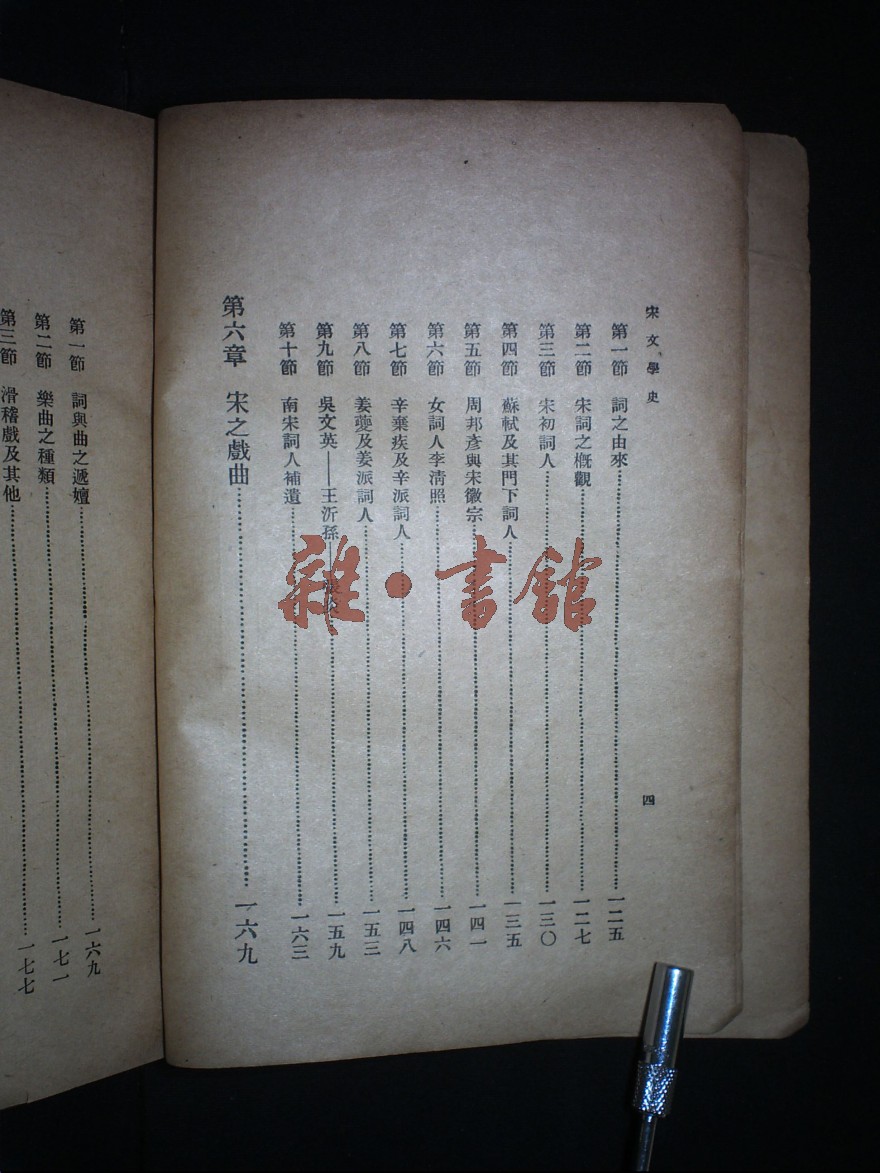 宋文學史
四
第一節　詞之由來……一二五
第二節　宋詞之概觀……一二七
第三節　宋初詞人……一三〇
第四節　蘇軾及其門下詞人……一三五
第五節　周邦彥與宋徽宗……一四一
第六節　女詞人李清照……一四六
第七節　辛棄疾及辛派詞人……一四八
第八節　姜夔及姜派詞人……一五三
第九節　吳文英——王沂孫——……一五九
第十節　南宋詞人補遺……一六三
第六章　宋之戲曲……一六九
第一節　詞與曲之遞嬗……一六九
第二節　樂曲之種類……一七一
第三節　滑稽戲及其他……一七七
雜·書館